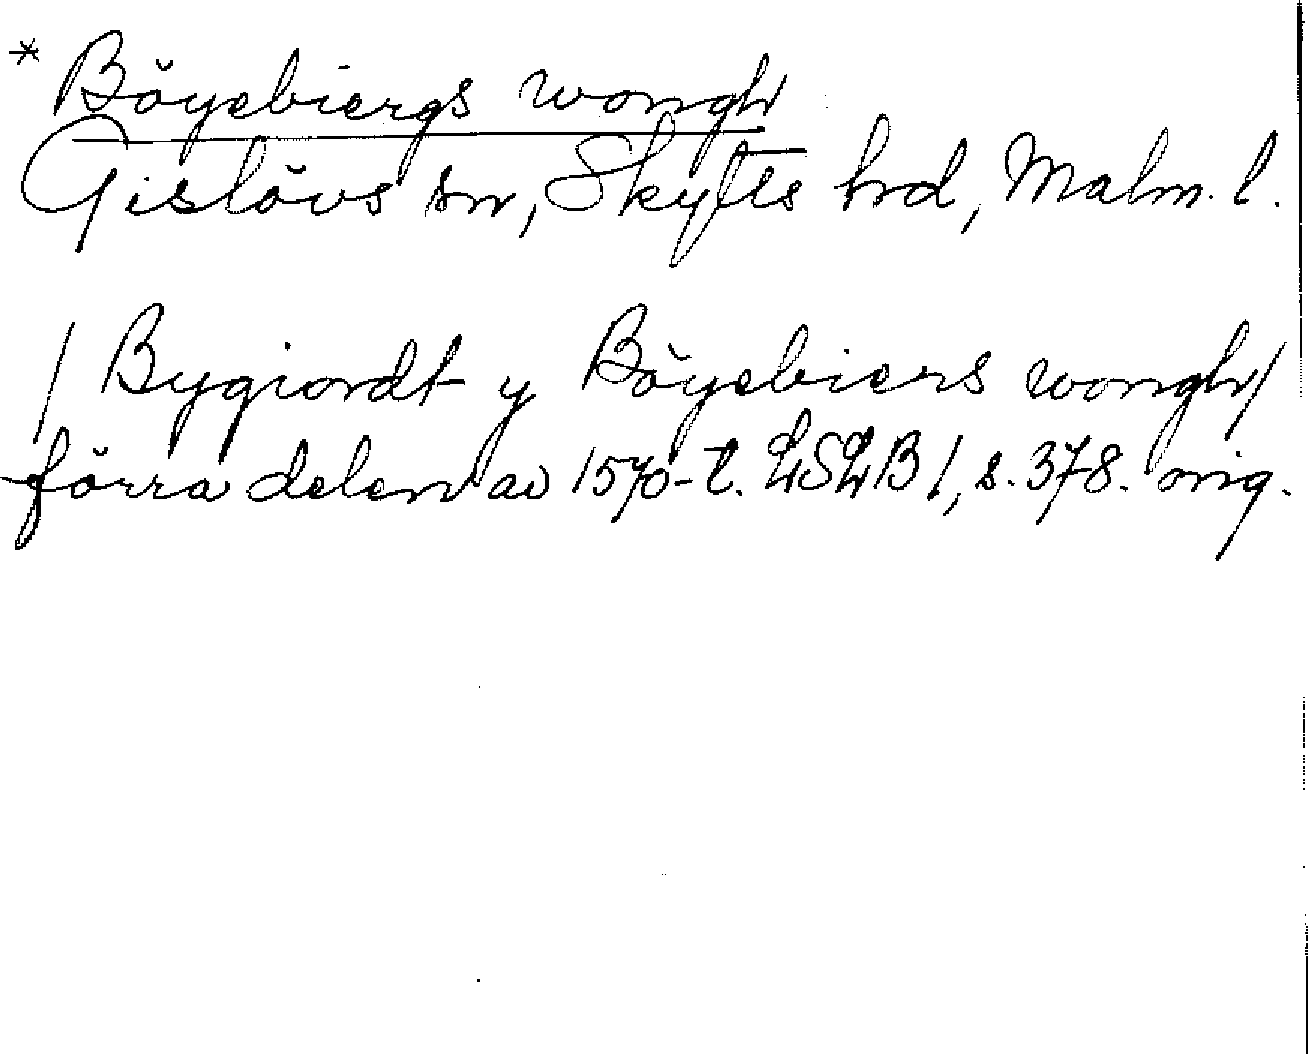 * Böyebiergs wongh
Gislövs sn, Skytts hrd, Malm. l.
/ Bygiordt y Böyebiers wongh/
förra delen av 1570-t. LSLB I, s. 378. orig.